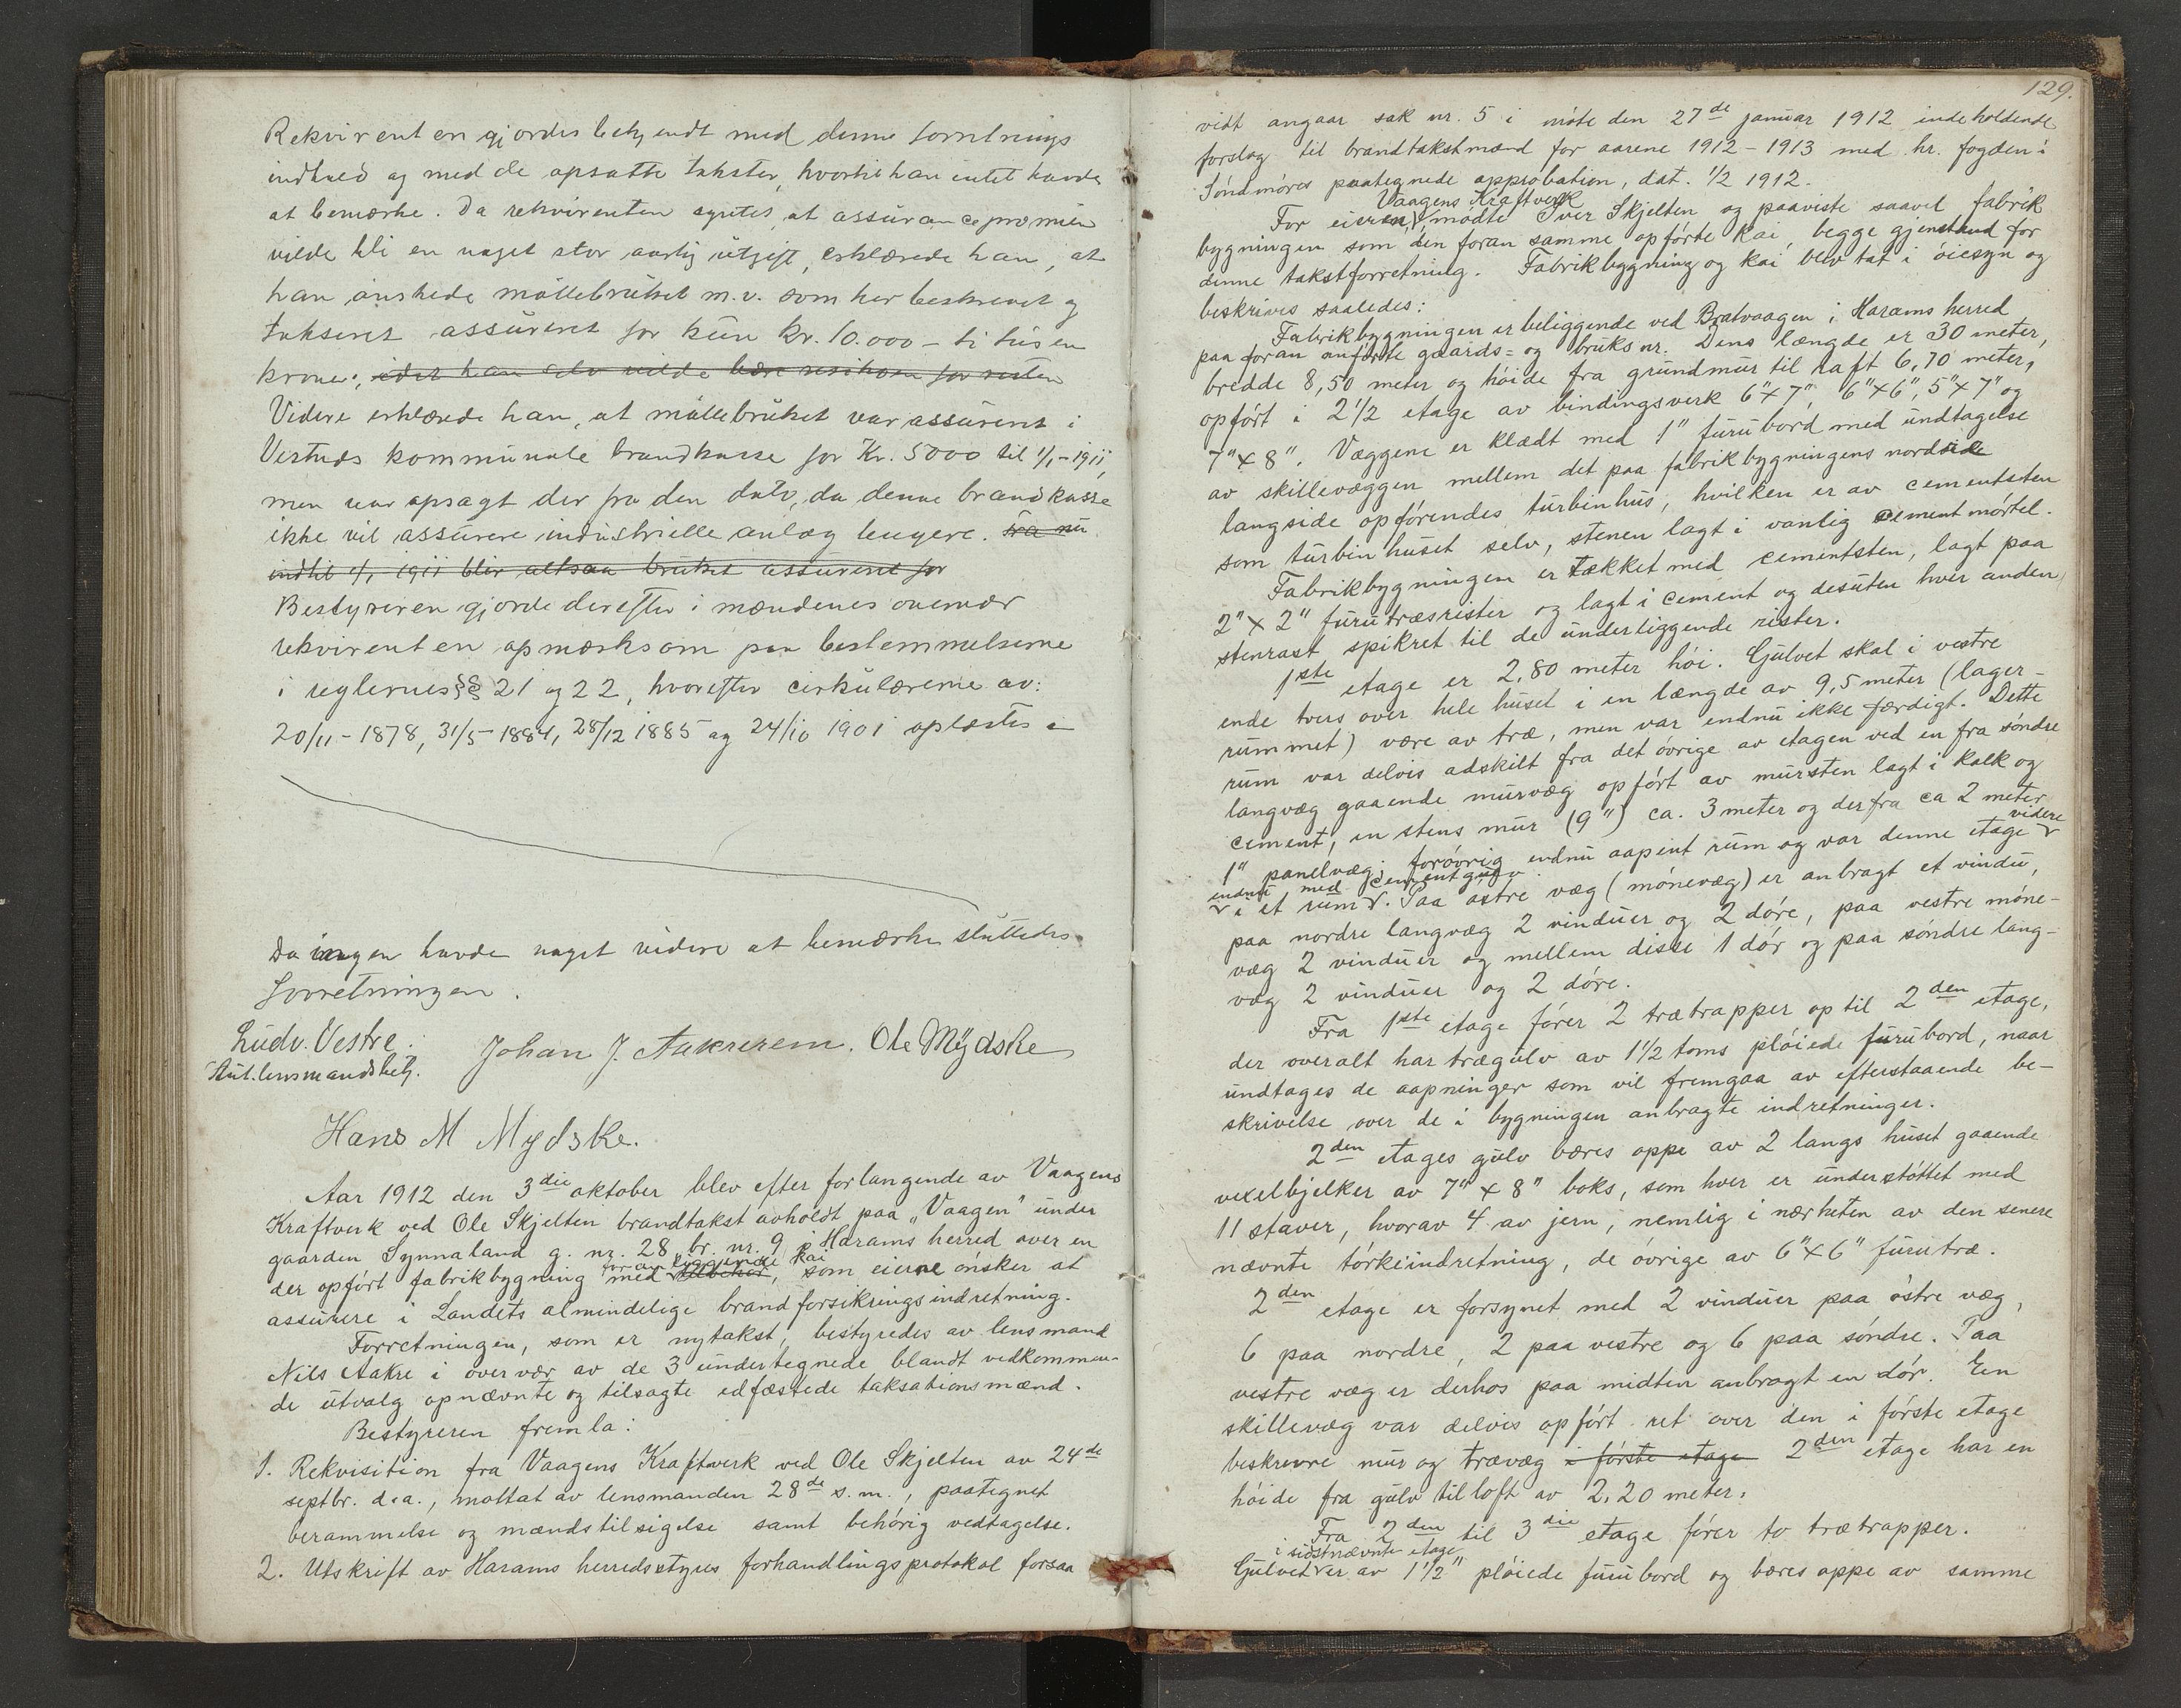 Rekvirenten gjordes bekjendt med denne forretnings
indhold og med de opsatte takster, hvortil han intet havde
at bemærke. Da rekvirenten syntes, at assurancepræmien
vilde bli en noget stor aarlig utgift, erklærede han, at
han ønskede møllebruket m.v. som her beskrevet og
taksert assureret for kun kr. 10.000 – ti tusen
kroner, idet han selv vilde bære risikoen for resten
Videre erklærede han, at møllebruket var assureret i
Vestnes kommunale brandkasse for Kr. 5000 til 1/1 – 1911,
men var opsagt der fra den dato, da denne brandkasse
ikke vil assurere industrielle anlæg lengere. Fra nu
indtil 1/1 1911 blir altsaa bruket assureret for
Bestyreren gjorde derefter i mændenes overvær
rekvirenten opmærksom paa bestemmelserne
i reglernes §§ 21 og 22, hvorefter cirkulærerne av:
20/11 – 1878, 31/5 – 1884, 28/12 1885 og 24/10 1901 oplæstes
Da ingen havde noget videre at bemærke sluttedes
forretningen.
Ludv. Vestre. Johan J. Aakrerem. Ole Mÿdske
Aut. lensmandsbetj.
Hans M Mydske.
Aar 1912 den 3die oktober blev efter forlangende av Vaagens
Kraftverk ved Ole Skjelten brandtakst avholdt paa „Vaagen" under
gaarden Synnaland g. nr. 28 br. nr. 9 i Harams herred over en
foran liggende kai
der opført fabrikbygning med tilbehør, som eierne ønsker at
assurere i Landets almindelige brandforsikringsindretning.
Forretningen, som er nytakst, bestyredes av lensmand
Nils Aakre i overvær av de 3 undertegnede blandt vedkommen-
de utvalg opnævnte og tilsagte edfæstede taksationsmænd.
Bestyreren fremla:
1. Rekvisition fra Vaagens Kraftverk ved Ole Skjelten av 24de
septbr. d.a., mottat av lensmanden 28de s.m., paategnet
berammelse og mændstilsigelse samt behørig vedtagelse.
2. Utskrift av Harams herredsstyres forhandlingsprotokol forsaa
129.
vidt angaar sak nr. 5 i møte den 27de januar 1912 indeholdende
forslag til brandtakstmænd for aarene 1912 – 1913 med hr. fogden i
Søndmøres paategnede approbation, dat. 1/2 1912.
Vaagens Kraftverk
For eieren, møtte Iver Skjelten og paaviste saavel fabrik
bygningen som den foran samme opførte kai, begge gjenstand for
denne takstforretning. Fabrikbygning og kai blev tat i øiesyn og
beskrives saaledes:
Fabrikbygningen er beliggende ved Bratvaagen i Harams herred
paa foran anførte gaards= og bruksnr. Dens længde er 30 meter,
bredde 8,50 meter og høide fra grundmur til raft 6,70 meter,
opført i 2 1/2 etage av bindingsverk 6"x7", 6"x6", 5"x7" og
7"x8". Væggene er klædt med 1" furubord med undtagelse
av skillevæggen mellem det paa fabrikbygningens nordside
langside opførendes turbinhus, hvilken er av cementsten
som turbinhuset selv, stenen lagt i vanlig cementmørtel.
Fabrikbygningen er tækket med cementsten, lagt paa
2"x2" furutræsrister og lagt i cement og desuten hver anden
stenrast spikret til de underliggende rister.
1ste etage er 2,80 meter høi. Gulvet skal i vestre
ende tvers over hele huset i en længde av 9,5 meter (lager-
rummet) være av træ, men var endnu ikke færdigt. Dette
rum var delvis adskilt fra det øvrige av etagen ved en fra søndre
langvæg gaaende murvæg opført av mursten lagt i kalk og
cement, en stens mur (9") ca. 3 meter og derfra ca 2 meter
videre
1" panelvæg; forøvrig endnu aapent rum og var denne etage
endnu med cementgulv
i et rum. Paa østre væg (mønevæg) er anbragt et vindu,
paa nordre langvæg 2 vinduer og 2 døre, paa vestre møne-
væg 2 vinduer og mellem disse 1 dør og paa søndre lang-
væg 2 vinduer og 2 døre.
Fra 1ste etage fører 2 trætrapper op til 2den etage,
der overalt har trægulv av 1 1/2 toms pløiede furubord, naar
undtages de aapninger som vil fremgaa av efterstaaende be-
skrivelse over de i bygningen anbragte indretninger.
2den etages gulv bæres oppe av 2 langs huset gaaende
vexelbjelker av 7" x 8" boks, som hver er understøttet med
11 staver, hvorav 4 av jern, nemlig i nærheten av den senere
nævnte tørkeindretning, de øvrige av 6"x6" furutræ.
2den etage er forsynet med 2 vinduer paa østre væg,
6 paa nordre, 2 paa vestre og 6 paa søndre. Paa
vestre væg er derhos paa midten anbragt en dør. En
skillevæg var delvis opført ret over den i første etage
beskrevne mur og trævæg i første etage 2den etage har en
høide fra gulv til loft av 2,20 meter.
Fra 2den til 3die etage fører to trætrapper.
i sidstnævnte etage
Gulvet er av 1 1/2" pløiede furubord og bæres oppe av samme